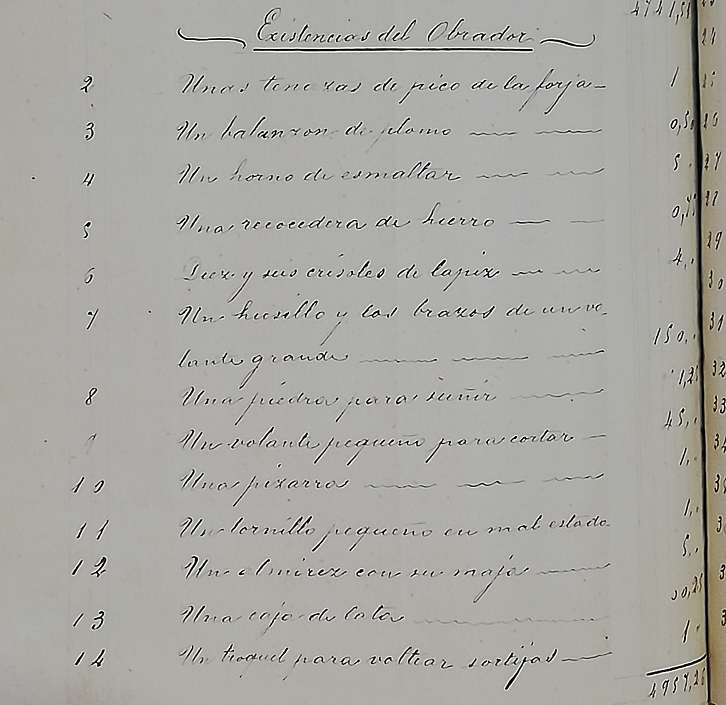 4741,51
Existencias del Obrador
2 Unas tenezas de pico de la forja 1
3 Un balanzon de plomo 0,50
4 Un horno de esmaltar 5.
5 Una recocedera de hierro 0,75
6 Diez y seis crisoles de lapiz 4,.
7 Un husillo y los brazos de un vo-
lante grande 150,.
8 Una piedra para 1,25
9 Un volante pequeño para cortar 45,.
10 Una pizarra 1,.
11 Un tornillo pequeño en mal estado 1,.
12 Un almirez con su maja 5,.
13 Una caja de lata 0,25
14 Un troquel para voltear sortijas 1.